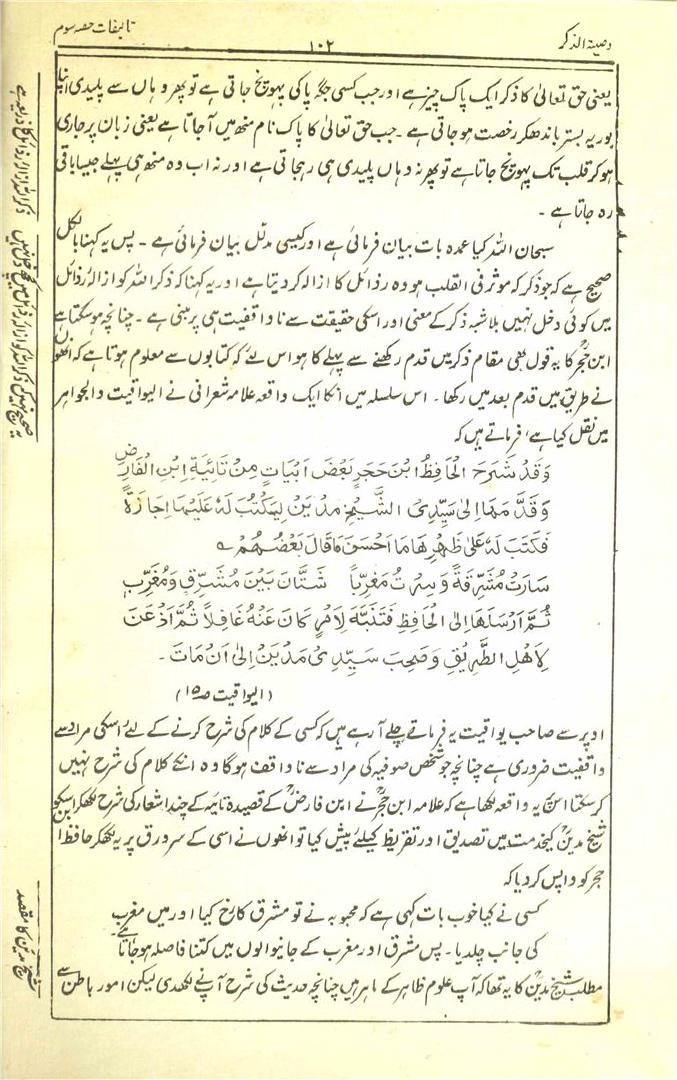 وصیۃ الذکر
۱۰۲
تالیفات حصہ سوم
یعنی حق تعالیٰ کا ذکر ایک پاک چیز ہے اور جب کسی جگہ پاکی پہونچ جاتی ہے تو پھر وہاں سے پلیدی اپنا
بوریہ بستر باندھکر رخصت ہو جاتی ہے ۔ جب حق تعالیٰ کا پاک نام منھ میں آجاتا ہے یعنی زبان پر جاری
ہو کر قلب تک پہونچ جاتا ہے تو پھر نہ وہاں پلیدی ہی رہجاتی ہے اور نہ اب وہ منھ ہی پہلے جیسا باقی
رہ جاتا ہے ۔
سبحان اللہ کیا عمدہ بات بیان فرمائی ہے اور کیسی مدلل بیان فرمائی ہے ۔ پس یہ کہنا بالکل
صحیح ہے کہ جو ذکر کہ موثر فی القلب ہو وہ رذائل کا ازالہ کر دیتا ہے اور یہ کہنا کہ ذکر اللہ کو ازالۂ رذائل
میں کوئی دخل نہیں بلاشبہ ذکر کے معنی اور اسکی حقیقت سے ناواقفیت ہی پر مبنی ہے ۔ چنانچہ ہو سکتا ہے
ابن حجرؒ کا یہ قول بھی مقام ذکر میں قدم رکھنے سے پہلے کا ہو اس لئے کہ کتابوں سے معلوم ہوتا ہے کہ انھوں
نے طریق میں قدم بعد میں رکھا ۔ اس سلسلہ میں انکا ایک واقعہ علامہ شعرانی نے الیواقیت والجواہر
میں نقل کیا ہے، فرماتے ہیں کہ
وَقَدْ شَرَحَ الْحَافِظُ ابْنُ حَجَرٍ بَعْضَ اَبْيَاتٍ مِنْ تَائِيَةِ ابْنِ الْفَارِضِ
وَقَدَّمَهَا اِلىٰ سَيِّدِىْ الشَّيْخِ مَدْيَنَ لِيَكْتُبَ لَهٗ عَلَيْهَا اِجَازَةً
فَكَتَبَ لَهٗ عَلىٰ ظَهْرِهَا مَا اَحْسَنَ مَا قَالَ بَعْضُهُمْ ؎
سَارَتْ مُشَرِّقَةً وَسِرْتُ مُغَرِّباً شَتَّانَ بَيْنَ مُشَرِّقٍ وَمُغَرِّبٍ
ثُمَّ اَرْسَلَهَا اِلىٰ الْحَافِظِ فَتَنَبَّهَ لِاَمْرٍ كَانَ عَنْهُ غَافِلاً ثُمَّ اَذْعَنَ
لِاَهْلِ الطَّرِيْقِ وَصَحِبَ سَيِّدِىْ مَدْيَنَ اِلىٰ اَنْ مَاتَ ۔
(الیواقیت ص۱۵)
اوپر سے صاحب یواقیت یہ فرماتے چلے آرہے ہیں کہ کسی کے کلام کی شرح کرنے کے لئے اسکی مراد سے
واقفیت ضروری ہے چنانچہ جو شخص صوفیہ کی مراد سے ناواقف ہوگا وہ انکے کلام کی شرح نہیں
کر سکتا اس پر یہ واقعہ لکھا ہے کہ علامہ ابن حجرؒ نے ابن فارضؒ کے قصیدہ تائیہ کے چند اشعار کی شرح لکھکر اسکو
شیخ مدینؒ کیخدمت میں تصدیق اور تقریظ کیلئے پیش کیا تو انھوں نے اسی کے سرورق پر یہ لکھکر حافظ ابن
حجر کو واپس کر دیا کہ
کسی نے کیا خوب بات کہی ہے کہ محبوبہ نے تو مشرق کا رخ کیا اور میں مغرب
کی جانب چلدیا ۔ پس مشرق اور مغرب کے جانیوالوں میں کتنا فاصلہ ہو جاتا ہے
مطلب شیخ مدینؒ کا یہ تھا کہ آپ علوم ظاہر کے ماہر ہیں چنانچہ حدیث کی شرح آپ نے لکھدی لیکن امور باطن سے
ذکر اللہ ازالۂ رذائل کا ذریعہ ہے
شیخ مدین کا مقصد